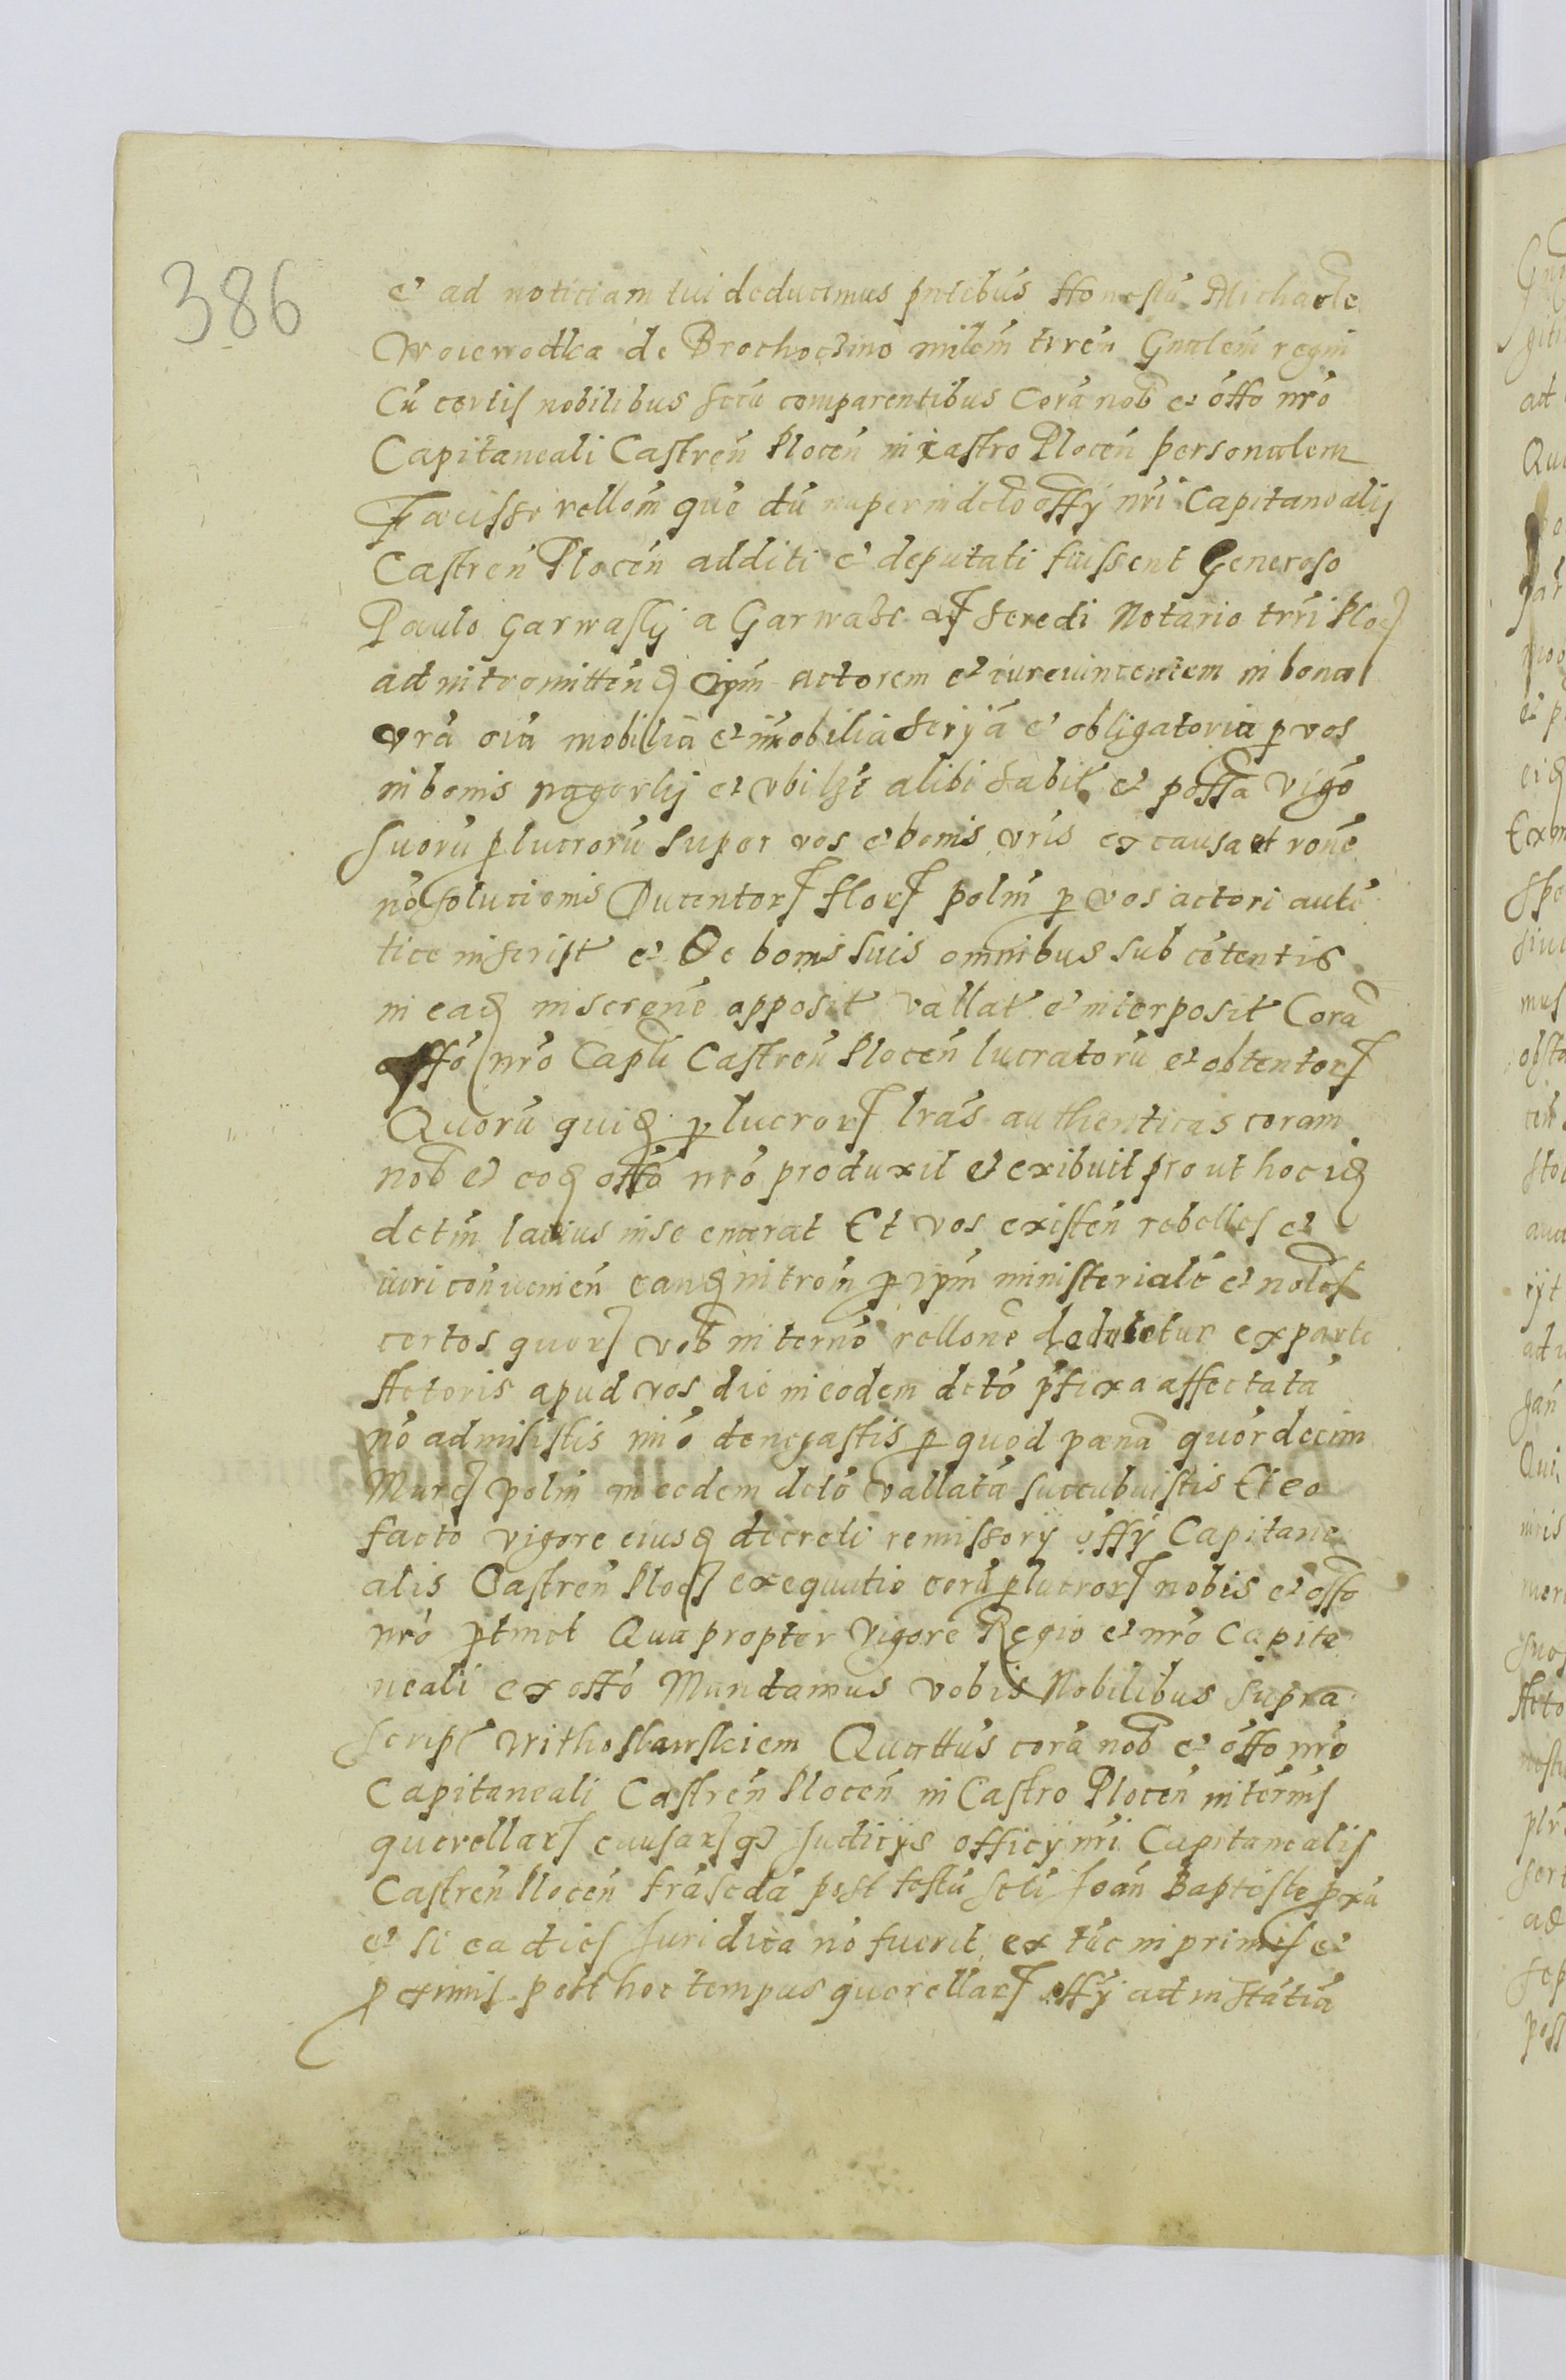 386
et ad noticiam tui deducimus pntibus Honestu Michaele
Woiewodka de Brochoczino milem trren Gnalem regni
Cu certis nobilibus secu comparentibus Cora nob et offo nro
Capitaneali Castren Plocen in castro Plocen personalem
Faecisse rellom quo du nuper in dcto offy nri Capitanealis
Castren Plocen additi et deputati fuissent Generoso
Paulo Garwasky a Garwasz heredi Notario trri Ploc
ad intromitten ipm actorem et iurevincentem in bona
vra oia mobilia et imobilia scrya et obligatoria p vos
in bonis et vbi lzt alibi habit et possa vigo
suoru plucroru super vos et bonis vris ex causa et rone
no solucionis Ducentor flor polm p vos actori aute
tice inscript et De bonis suis omnibus sub cotentis
in ead inscrene apposit vallat et interposit Cora
offo nro Capli Castren Plocen lucratoru et obtentor
Quoru quid plucror lras authenticas coram
nob et eod offo nro produxit et exibuit prout hoc id
dctm lacius in se enarat Et vos existen rebelles et
iuri convenien eand introm p ipm ministeriale et noles
certos quor vob in terno rellone deducetur ex parte
Actoris apud vos die in eodem dcto pfixa affectata
no admisistis imo denegastis p quod paena quordecim
Marc polm in eodem dcto vallata succubuistis Et eo
facto vigore eiusd decreti remissory offy Capitane
alis Castren Ploc exequutio eoru plucror nobis et offo
nro ptinet Qua propter vigore Regio et nro Capita
neali ex offo Mandamus vobis Nobilibus supra
script Withoslawskiem Quattus cora nob et offo nro
Capitaneali Castren Plocen in Castro Plocen in ternis
querellar causarq Judicys officy nri Capitanealis
Castren Plocen frascda post festu scti Joan Baptiste pxa
et si ea dies Juridica no fuerit ex tuc in primis et
pximis post hoc tempus querellar offy ad instatia